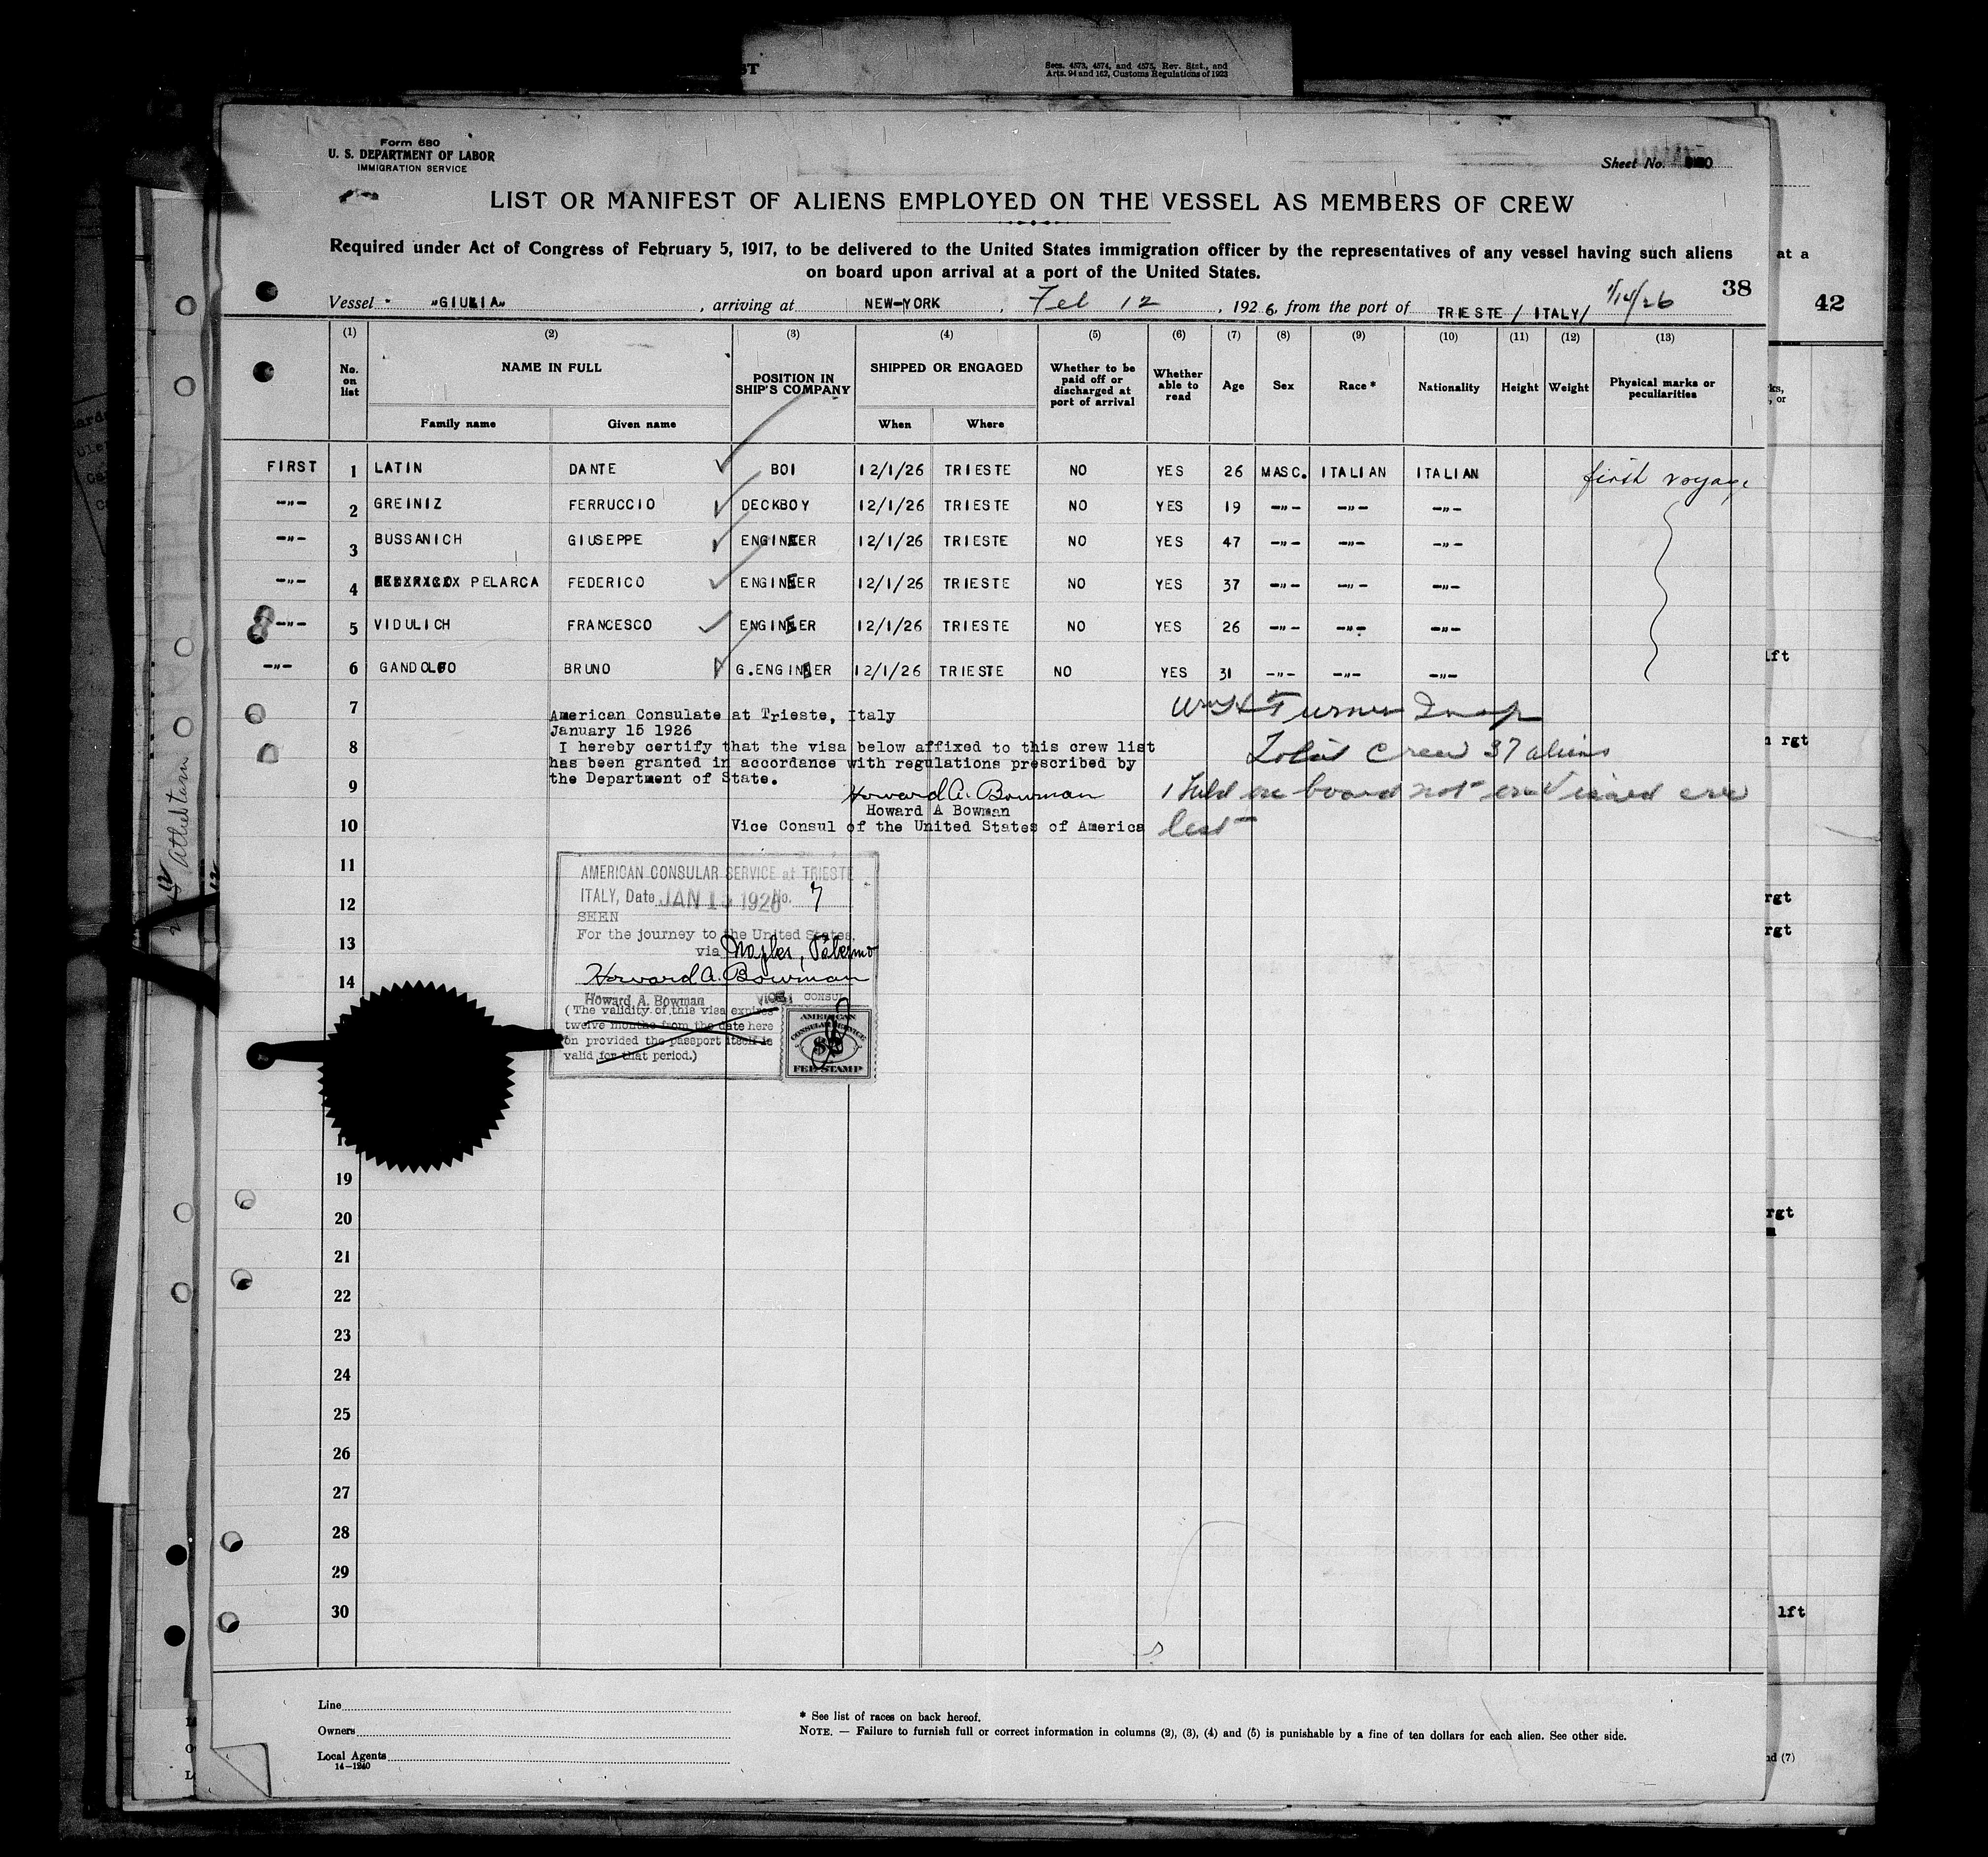 Secs. 4573, 4574, and 4575, Rev. Stat., and
Arts. 94 and 162, Customs Regulations of 1923
Form 680
U. S. DEPARTMENT OF LABOR
IMMIGRATION SERVICE
Sheet No.
LIST OR MANIFEST OF ALIENS EMPLOYED ON THE VESSEL AS MEMBERS OF CREW
Required under Act of Congress of February 5, 1917, to be delivered to the United States immigration officer by the representatives of any vessel having such aliens
on board upon arrival at a port of the United States.
38
42
Vessel "GIULIA", arriving at NEW-YORK, Feb 12, 1926, from the port of TRIESTE / ITALY/ 1/14/26
(1) (2) (3) (4) (5) (6) (7) (8) (9) (10) (11) (12) (13)
No. on list NAME IN FULL Family name Given name POSITION IN SHIP'S COMPANY SHIPPED OR ENGAGED When Where Whether to be paid off or discharged at port of arrival Whether able to read Age Sex Race* Nationality Height Weight Physical marks or peculiarities
FIRST 1 LATIN DANTE BOI 12/1/26 TRIESTE NO YES 26 MASC. ITALIAN ITALIAN first voyage
-"- 2 GREINIZ FERRUCCIO DECKBOY 12/1/26 TRIESTE NO YES 19 -"- -"- -"-
-"- 3 BUSSANICH GIUSEPPE ENGINEER 12/1/26 TRIESTE NO YES 47 -"- -"- -"-
-"- 4 PELARCA FEDERICO ENGINEER 12/1/26 TRIESTE NO YES 37 -"- -"- -"-
-"- 5 VIDULICH FRANCESCO ENGINEER 12/1/26 TRIESTE NO YES 26 -"- -"- -"-
-"- 6 GANDOLFO BRUNO G.ENGINEER 12/1/26 TRIESTE NO YES 31 -"- -"- -"-
7
American Consulate at Trieste, Italy
January 15 1926
8
I hereby certify that the visa below affixed to this crew list
has been granted in accordance with regulations prescribed by
the Department of State.
Turner Insp
Total crew 37 aliens
1 Held on board not on visaed crew
list
9
Howard A. Bowman
Howard A Bowman
10
Vice Consul of the United States of America
11
AMERICAN CONSULAR SERVICE at TRIESTE
12
ITALY, Date JAN 15 1926 No. 7
SEEN
13
For the journey to the United States.
via Naples, Palermo
14
Howard A. Bowman
Howard A. Bowman VICE CONSUL
(The validity of this visa expires
twelve months from the date here
on provided the passport itself is
valid for that period.)
AMERICAN
CONSULAR SERVICE
FEE STAMP
19
20
21
22
23
24
25
26
27
28
29
30
Line
Owners
Local Agents
14-1240
* See list of races on back hereof.
NOTE. — Failure to furnish full or correct information in columns (2), (3), (4) and (5) is punishable by a fine of ten dollars for each alien. See other side.
at a
lft
rgt
rgt
rgt
rgt
lft